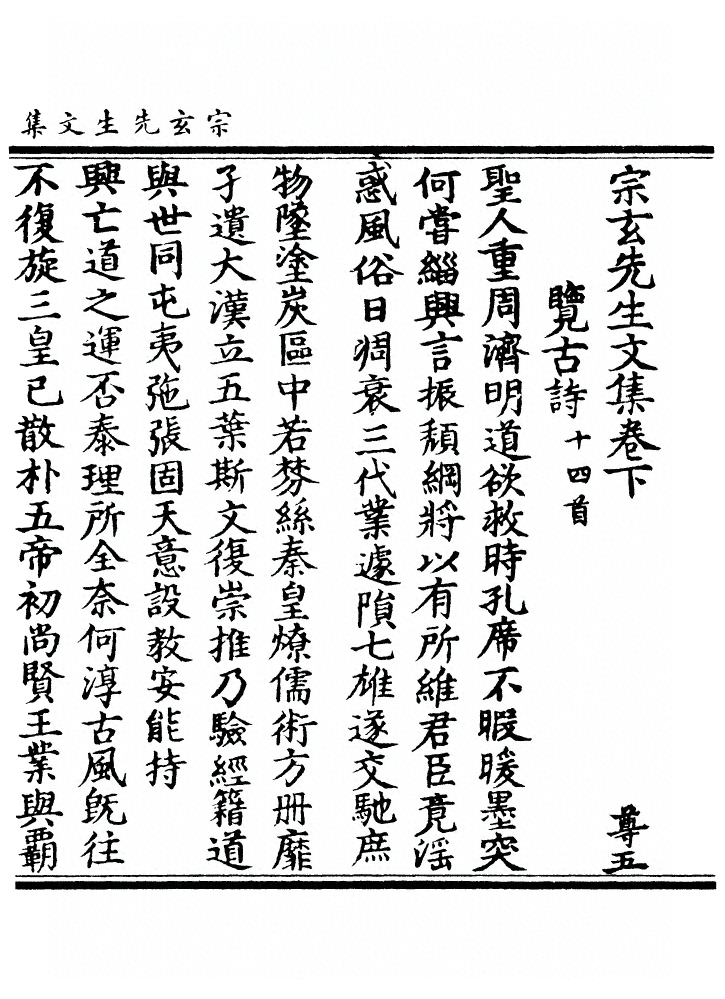 宗玄先生文集
宗玄先生文集卷下
尊五
覽古詩十四首
聖人重周濟明道欲救時孔席不暇暖墨突
何嘗緇興言振頹綱將以有所維君臣竟淫
惑風俗日凋衰三代業遽隕七雄遂交馳庶
物墜塗炭區中若棼絲秦皇燎儒術方冊靡
孑遺大漢立五葉斯文復崇推乃驗經籍道
與世同屯夷弛張固天意設教安能持
興亡道之運否泰理所全奈何淳古風旣往
不復旋三皇已散朴五帝初尚賢王業與霸